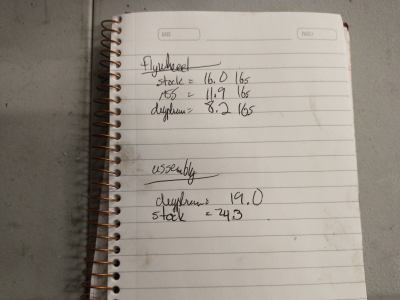 flywheel
stock = 16.0 lbs
RSS = 11.9 lbs
= 8.2 lbs
assembly
= 19.0
stock = 24.3